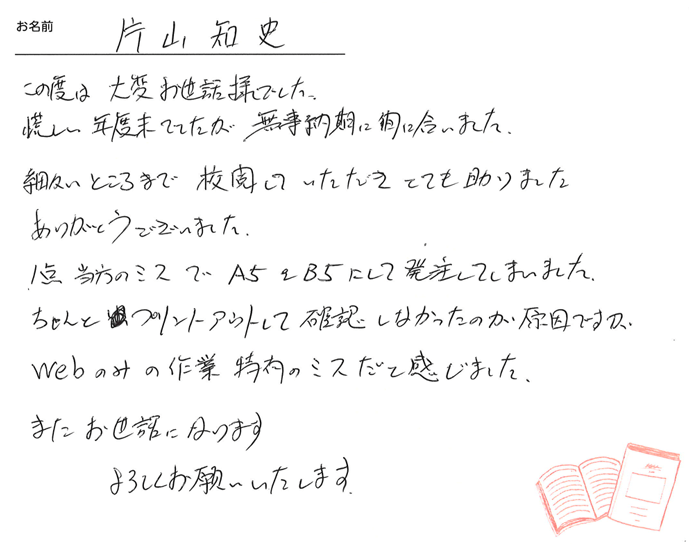 お名前 片山知史
この度は 大変お世話様でした。
慌しい年度末でしたが 無事納期に間に合いました。
細かいところまで 校閲して いただき とても助かりました
ありがとうございました。
1点 当方のミスで A5をB5にして発注してしまいました。
ちゃんと プリントアウトして 確認しなかったのが原因ですが、
Webのみの作業 特有のミスだと感じました。
また お世話になります
よろしくお願いいたします。